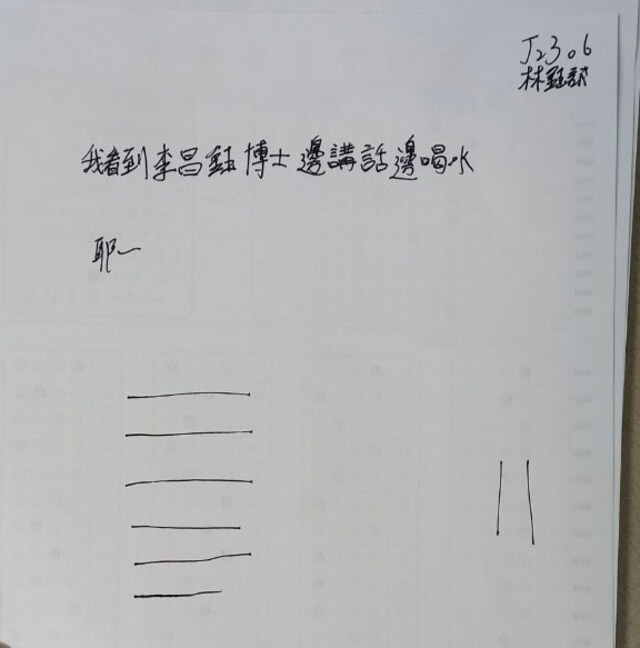 J2306
林鈺
我看到李昌鈺博士邊講話邊喝水
耶~